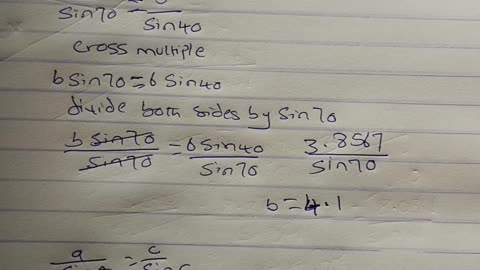 sin70 = sin40
cross multiple
b sin70 = 6 sin40
divide both sides by sin70
b sin70 / sin70 = 6 sin40 / sin70 3.8567 / sin70
b = 4.1
a = c